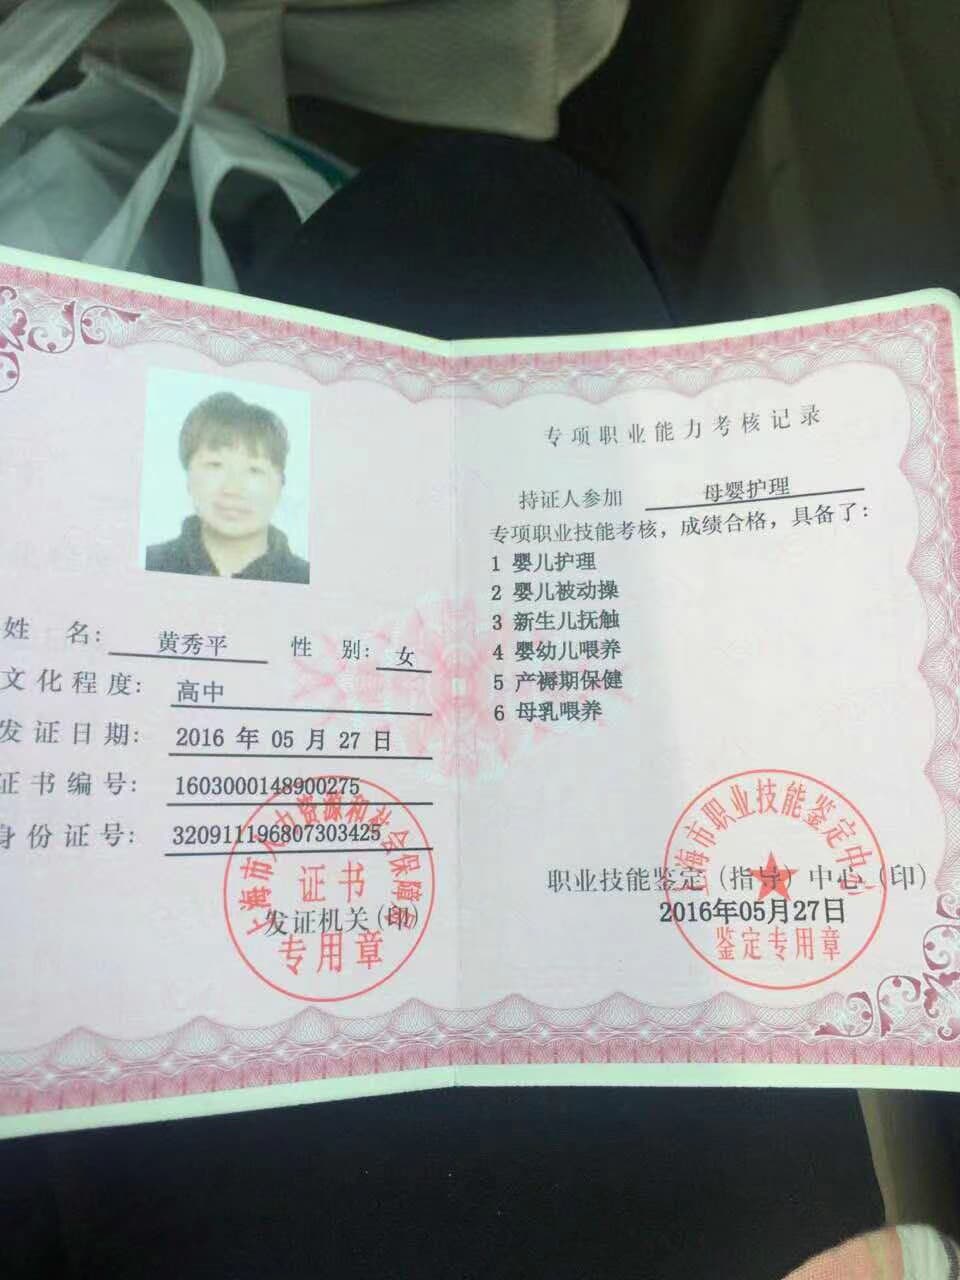 姓 名: 黄秀平 性 别: 女
文化程度: 高中
发证日期: 2016 年 05 月 27 日
证书编号: 1603000148900275
身份证号: 320911196807303425
上海市人力资源和社会保障局
证书
发证机关(印)
专用章
专项职业能力考核记录
持证人参加 母婴护理
专项职业技能考核，成绩合格，具备了：
1 婴儿护理
2 婴儿被动操
3 新生儿抚触
4 婴幼儿喂养
5 产褥期保健
6 母乳喂养
上海市职业技能鉴定中心
职业技能鉴定（指导）中心（印）
2016年05月27日
鉴定专用章